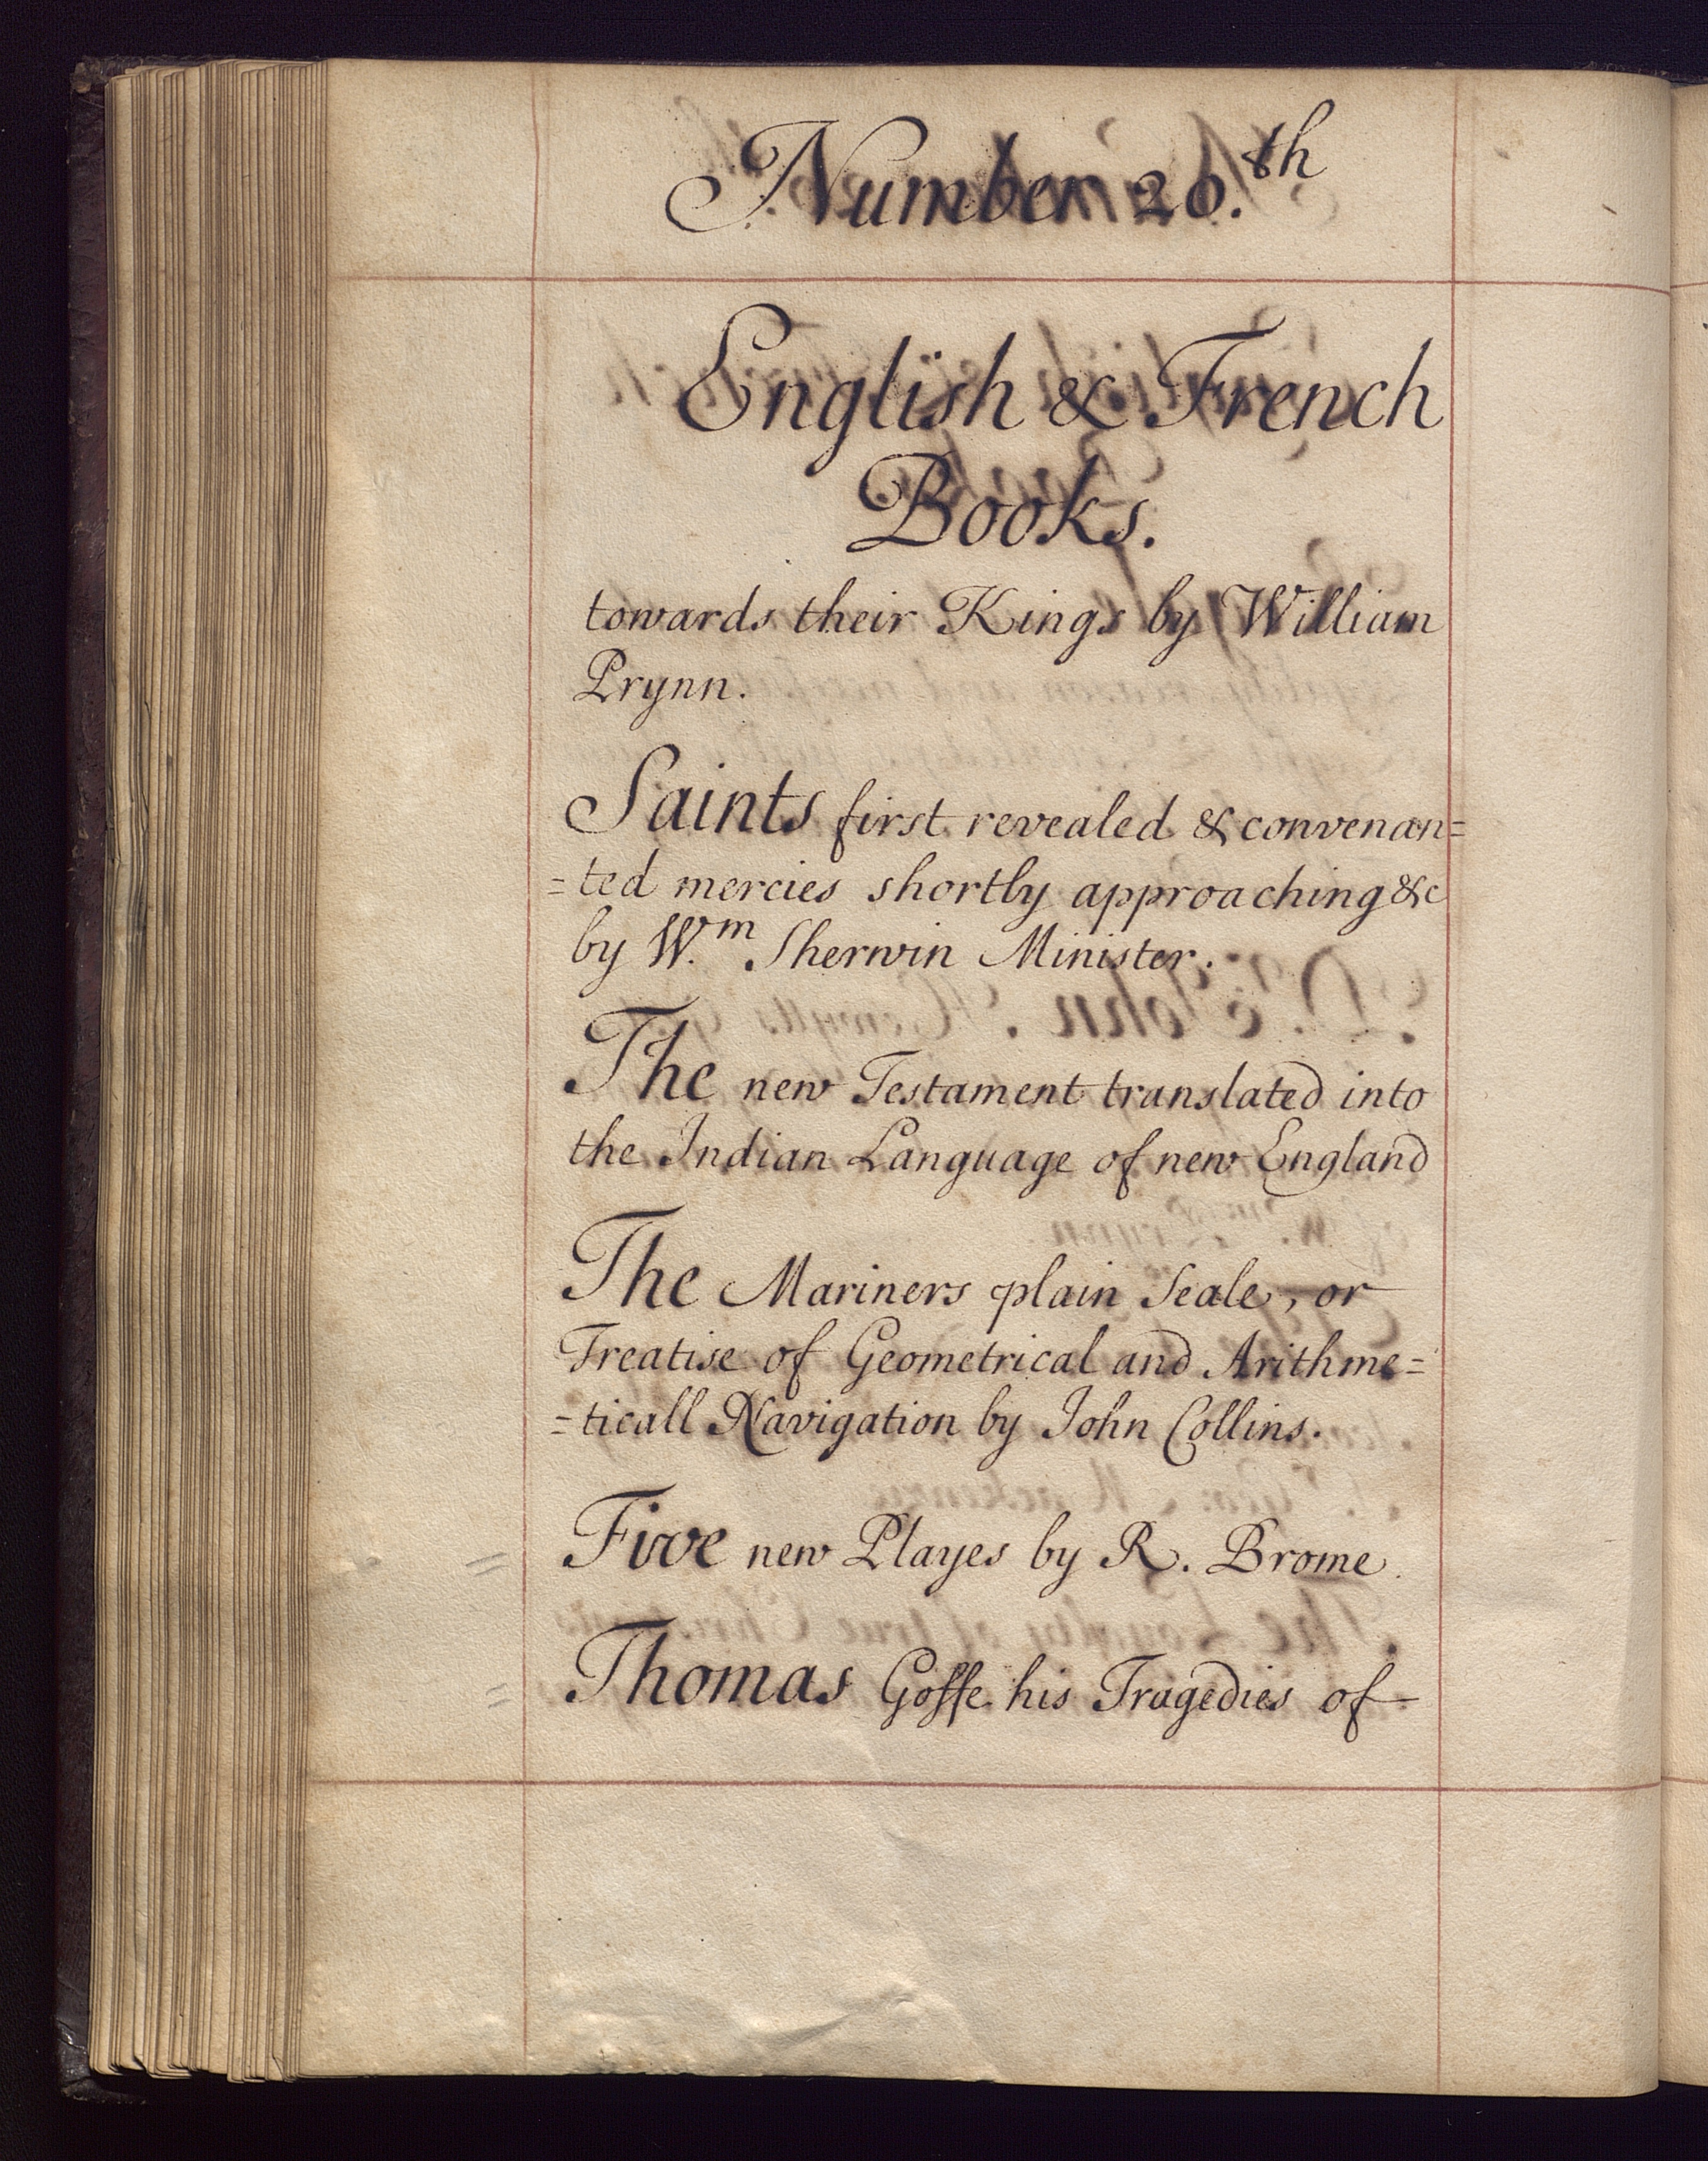 Number 20.th
English & French
Books.
towards their Kings by William
Prynn.
Saints first revealed & convenan=
=ted mercies shortly approaching &c
by W.m Sherwin Minister.
The new Testament translated into
the Indian Language of new England
The Mariners plain Scale, or
Treatise of Geometrical and Arithme=
=ticall Navigation by John Collins.
Five new Playes by R. Brome.
Thomas Goffe his Tragedies of